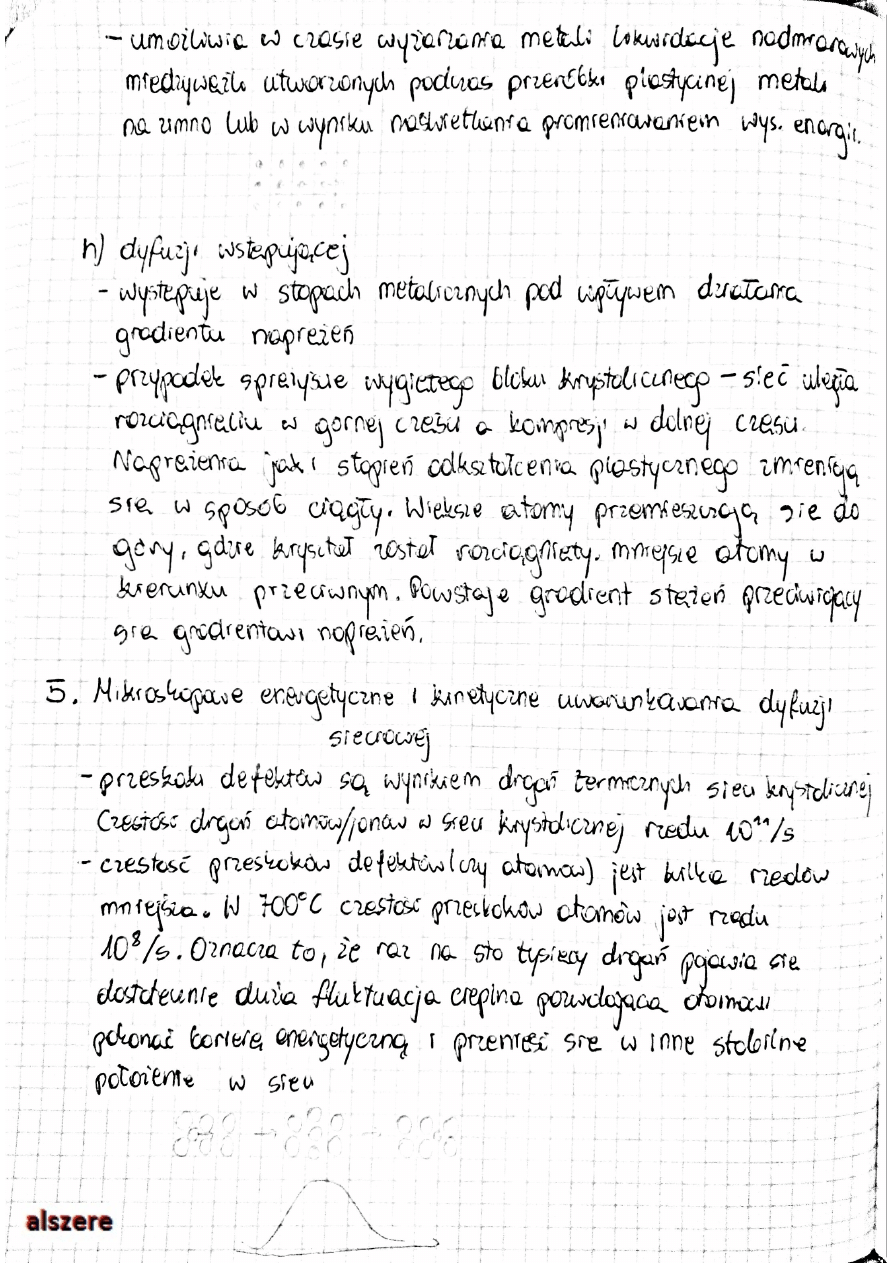 - umożliwia w czasie wyżarzania metali likwidację nadmiarowych
międzywęźli utworzonych podczas przeróbki plastycznej metali
na zimno lub w wyniku naświetlania promieniowaniem wys. energii.
h) dyfuzji wstępującej
- występuje w stopach metalicznych pod wpływem działania
gradientu naprężeń
- przypadek sprężyście wygiętego bloku krystalicznego - sieć uległa
rozciągnięciu w górnej części a kompresji w dolnej części.
Naprężenia jak i stopień odkształcenia plastycznego zmieniają
się w sposób ciągły. Większe atomy przemieszczają się do
góry, gdzie kryształ został rozciągnięty. mniejsze atomy w
kierunku przeciwnym. Powstaje gradient stężeń przeciwiający
się gradientowi naprężeń.
5. Mikroskopowe energetyczne i kinetyczne uwarunkowania dyfuzji
sieciowej
- przeskoki defektów są wynikiem drgań termicznych sieci krystalicznej
Częstość drgań atomów/jonów w sieci krystalicznej rzędu 10¹¹/s
- częstość przeskoków defektów(czy atomów) jest kilka rzędów
mniejsza. W 700°C częstość przeskoków atomów jest rzędu
10⁸/s. Oznacza to, że raz na sto tysięcy drgań pojawia się
dostatecznie duża fluktuacja cieplna pozwalająca atomowi
pokonać barierę energetyczną i przenieść się w inne stabilne
położenie w sieci
alszere